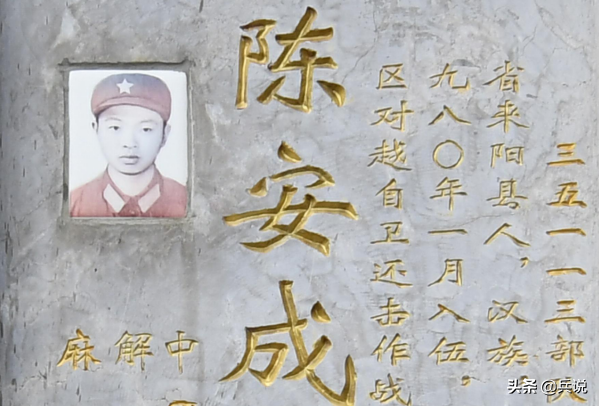 三五一一三部
省来阳县人，汉族
九八〇年一月入伍，
区对越自卫还击作战
陈安成
中
解
麻
头条 @兵说